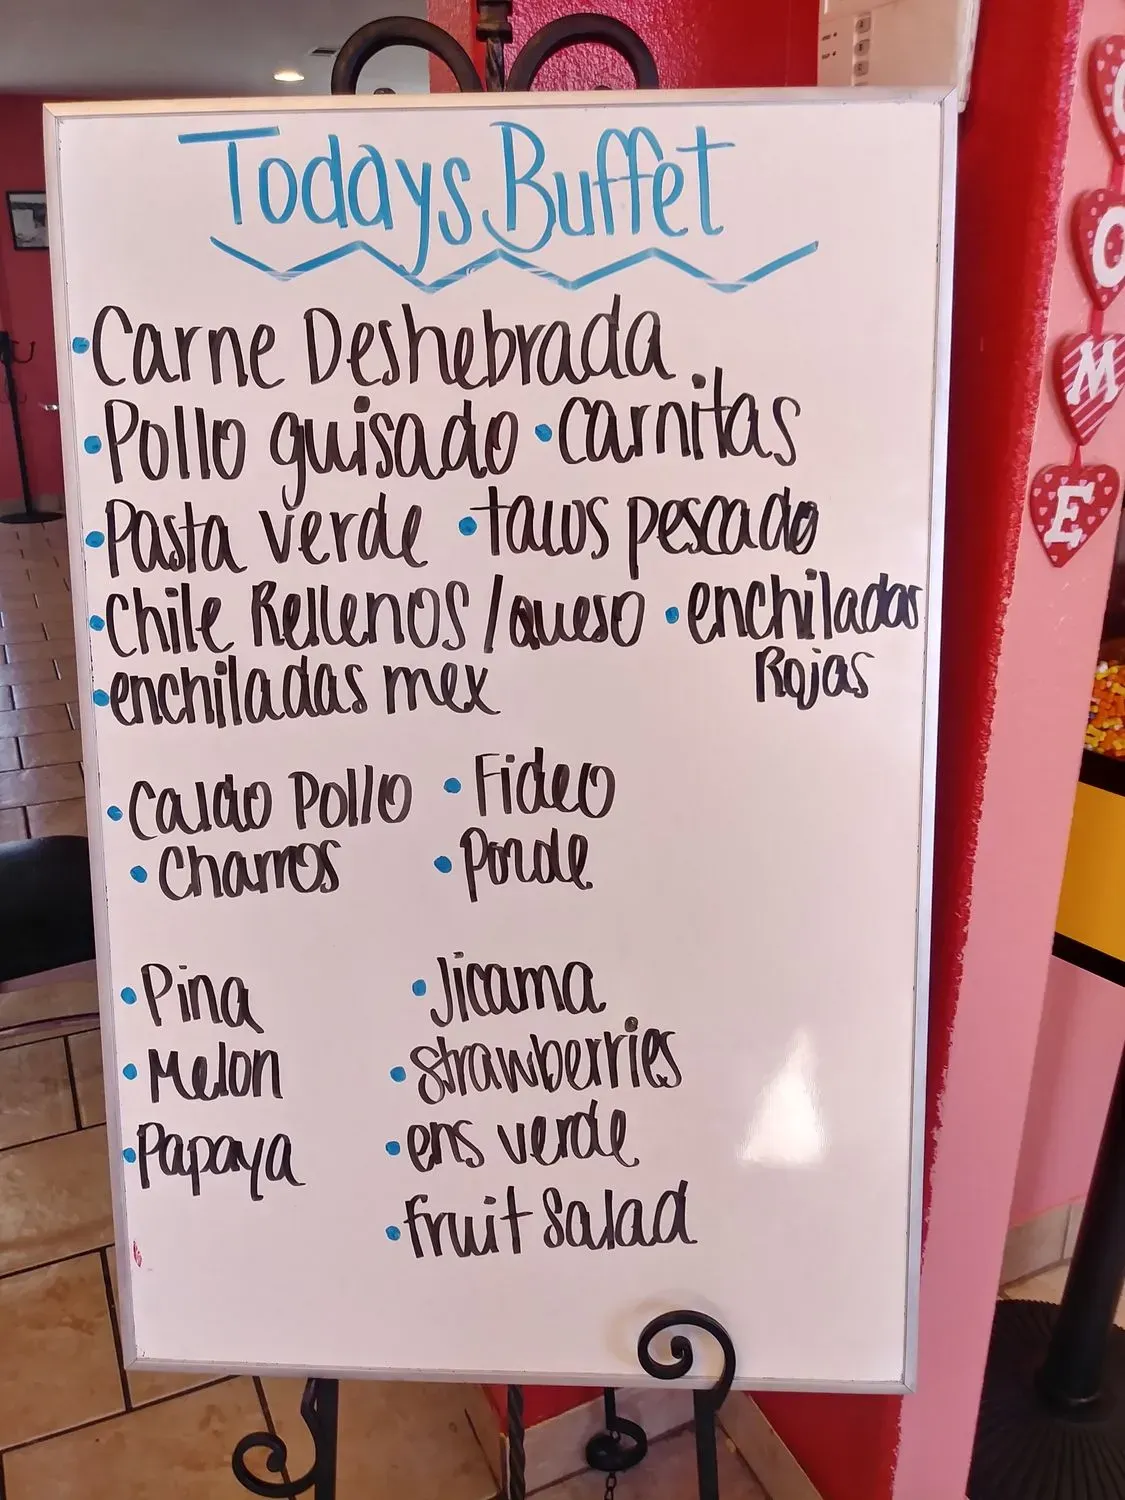 Todays Buffet
• Carne Deshebrada
• Pollo guisado • Carnitas
• Pasta verde • tacos pescado
• Chile Rellenos / queso • enchiladas
Rojas
• enchiladas mex
• Caldo Pollo • Fideo
• Charros • Pozole
• Pina • Jicama
• Melon • Strawberries
• Papaya • ens verde
• Fruit Salad
O
M
E